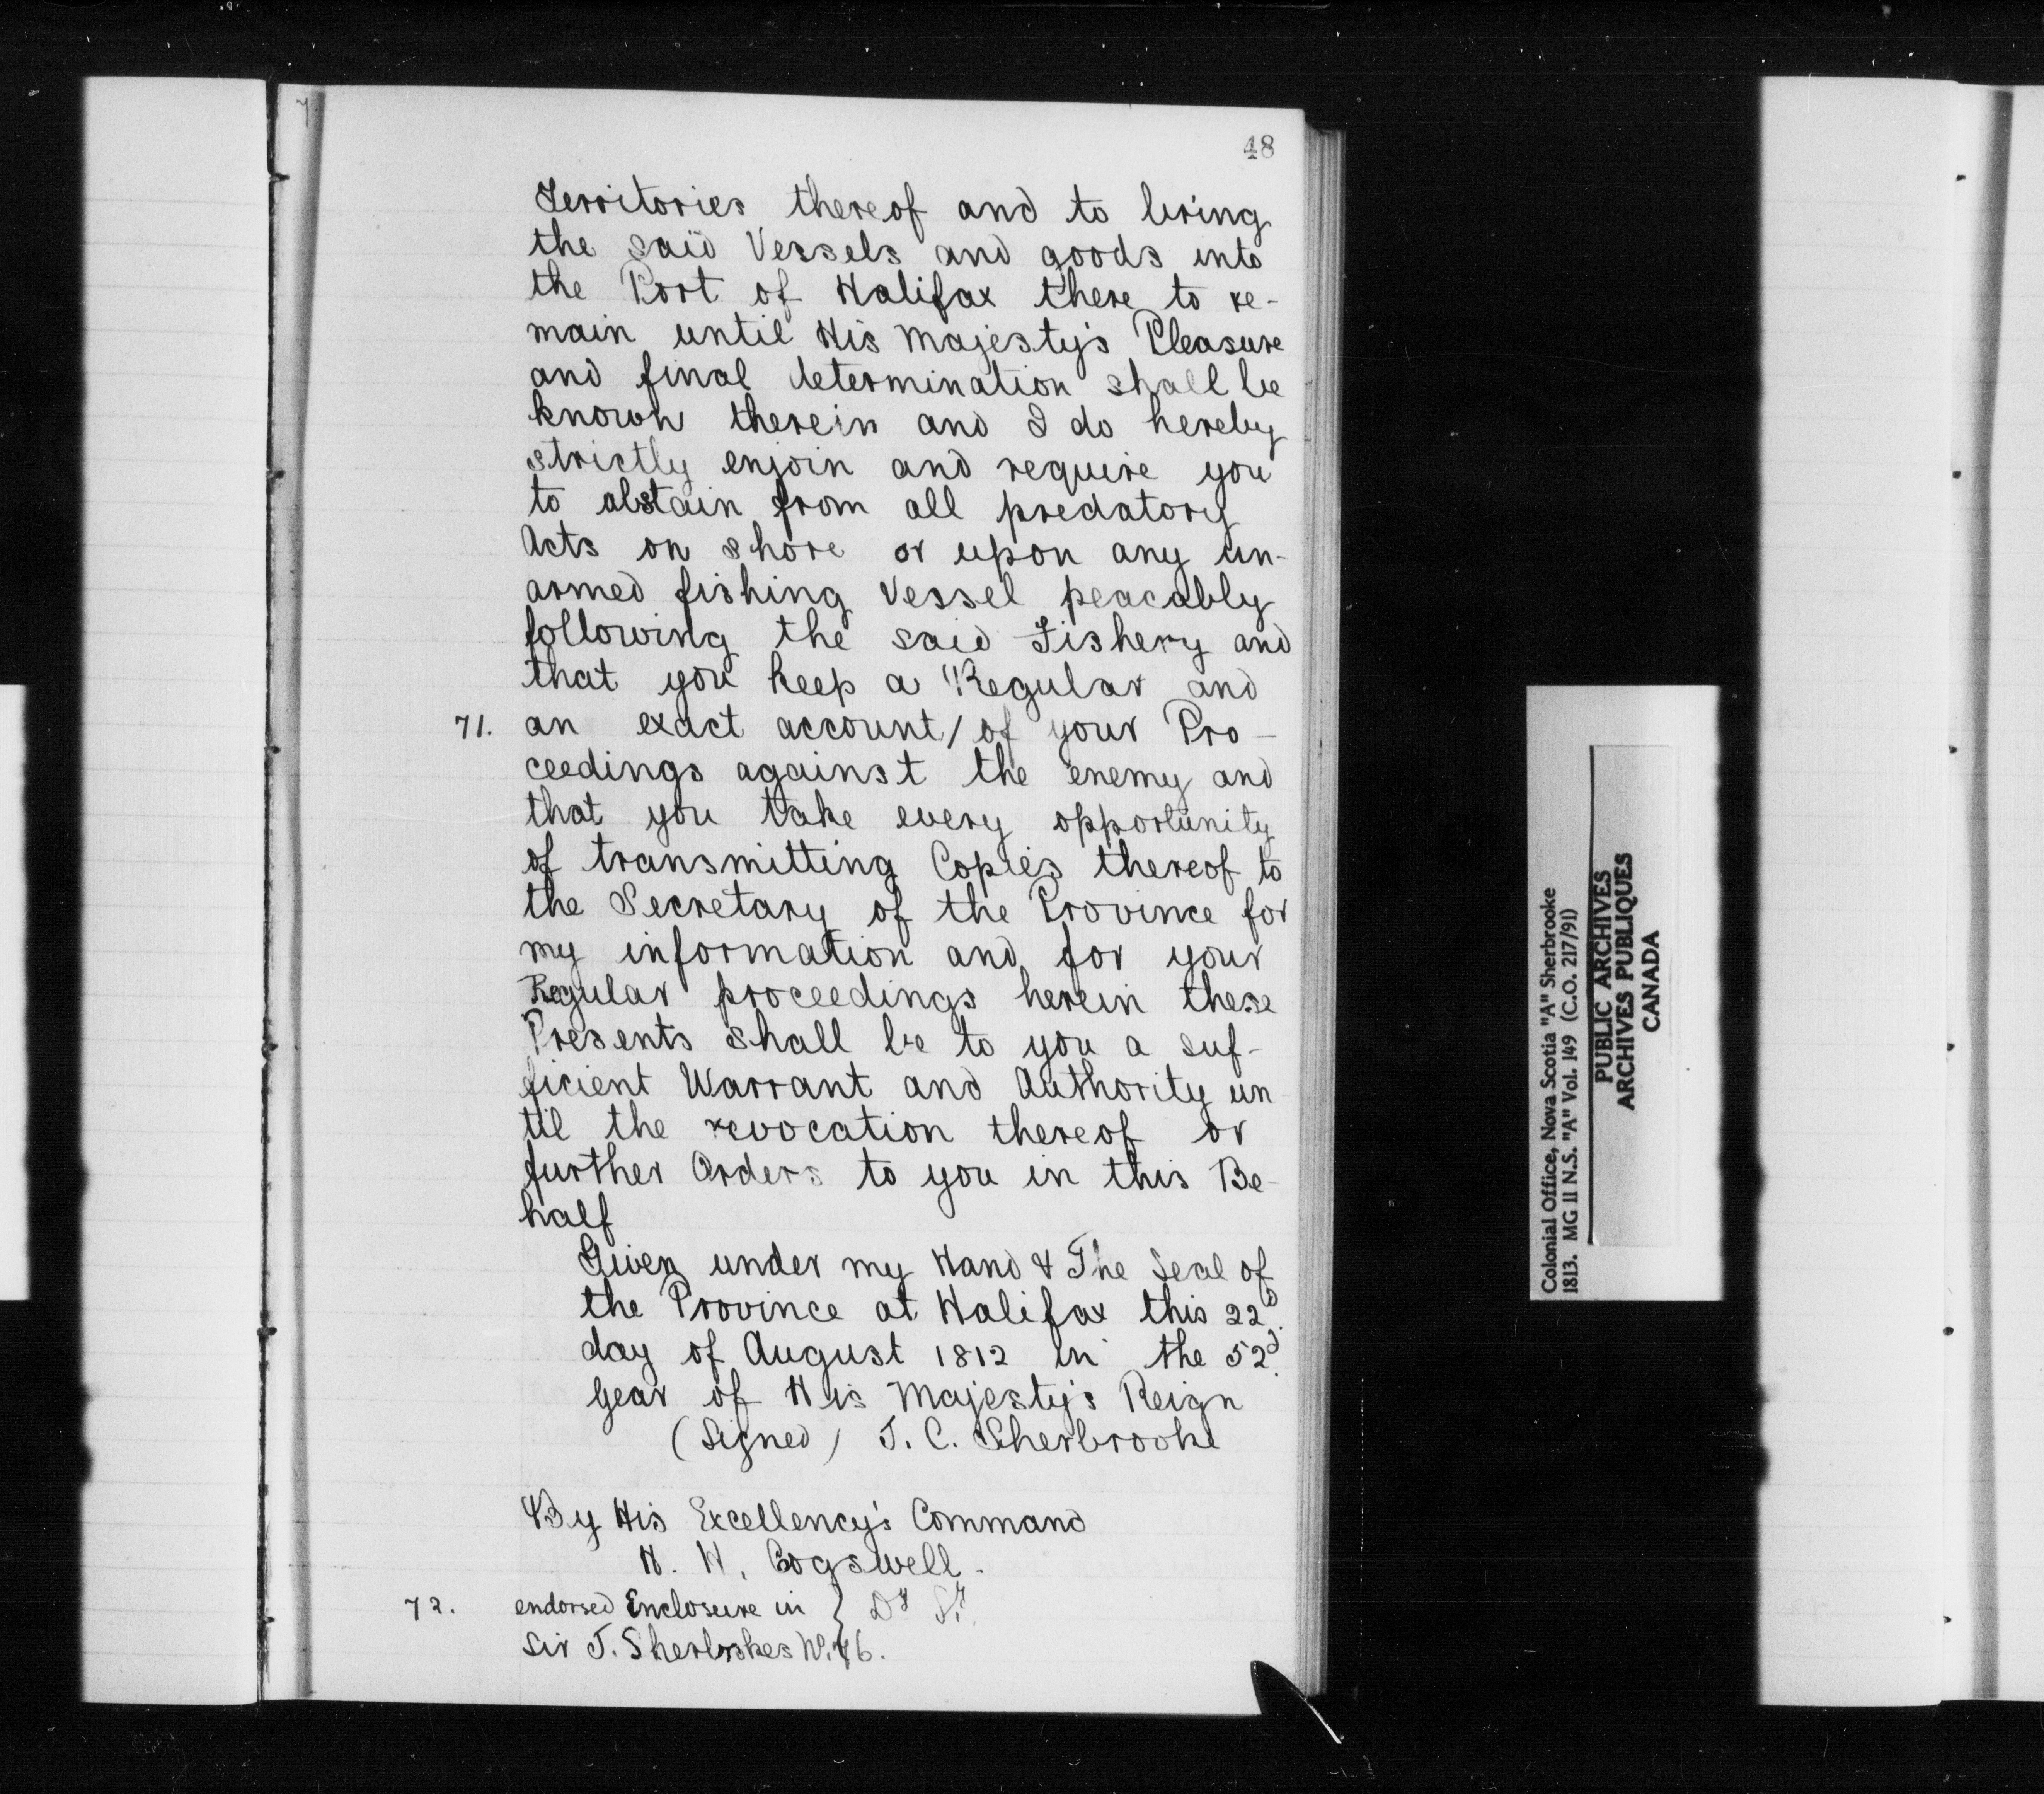 48
Territories thereof and to bring
the said Vessels and goods into
the Port of Halifax there to re-
main until His Majesty's Pleasure
and final determination shall be
known therein and I do hereby
strictly enjoin and require you
to abstain from all predatory
Acts on shore or upon any un-
armed fishing Vessel peacably
following the said Fishery and
that you keep a Regular and
71. an exact account / of your Pro-
ceedings against the enemy and
that you take every opportunity
of transmitting Copies thereof to
the Secretary of the Province for
my information and for your
Regular proceedings herein these
Presents shall be to you a suf-
ficient Warrant and Authority un
til the revocation thereof or
further Orders to you in this Be-
half
Given under my Hand & The Seal of
the Province at Halifax this 22d.
day of August 1812 in the 52d.
Year of His Majesty's Reign
(Signed) J. C. Sherbrooke
By His Excellency's Command
H. H. Cogswell.
72. endorsed Enclosure in }
Sir J. Sherbrokes
Colonial Office, Nova Scotia "A" Sherbrooke
1813. MG 11 N.S. "A" Vol. 149 (C.O. 217/91)
PUBLIC ARCHIVES
ARCHIVES PUBLIQUES
CANADA